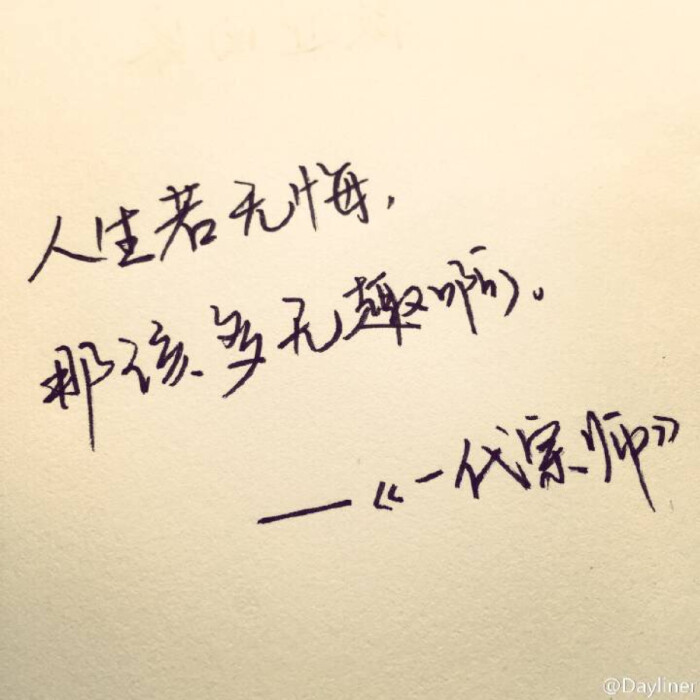 人生若无悔，
那该多无趣啊。
——《一代宗师》
@Dayliner